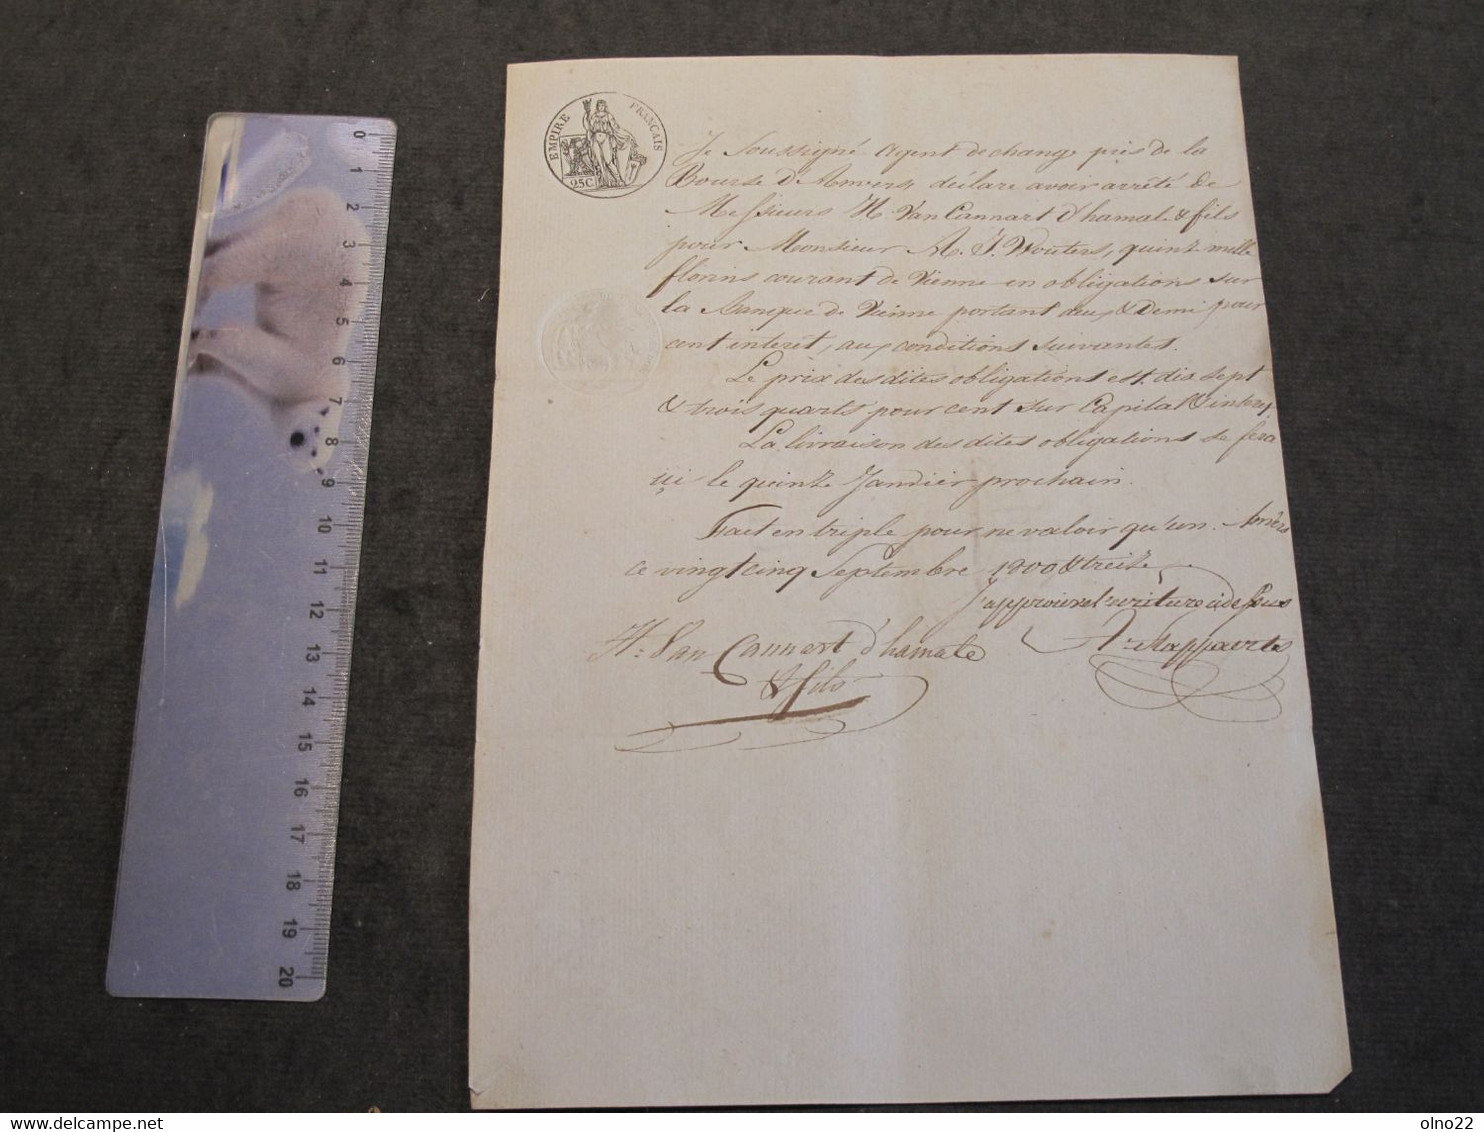 EMPIRE FRANÇAIS
25C
Je Soussigné Agent de change près de la
Bourse d'Anvers, déclare avoir arrêté de
Messieurs H. Van Cannart d'hamale & fils
pour Monsieur A. J. Wouters, quinze mille
florins courant de Vienne en obligations sur
la Banque de Vienne portant deux & Demi pour
cent interet, aux conditions suivantes.
Le prix des dites obligations est dix sept
& trois quarts pour cent sur Capital & interet
La livraison des dites obligations se fera
ici le quinze Janvier prochain.
Fait en triple pour ne valoir qu'un. Anvers
ce vingt cinq Septembre 1800 & treize
J'approuve l'ecriture ci dessus
H: Van Cannart d'hamale
& fils
0
1
2
3
4
5
6
7
8
9
10
11
12
13
14
15
16
17
18
19
20
olno22